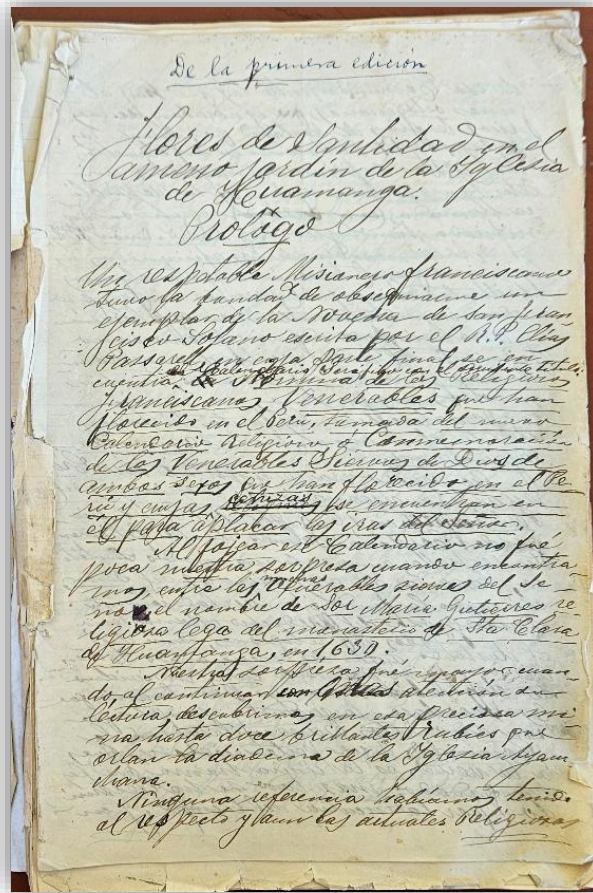 De la primera edición
Flores de Santidad en el
ameno jardín de la Iglesia
de Huamanga.
Prólogo
Un respetable Misionero franciscano
tuvo la bondad de obsequiarme un
ejemplar de la Novena de san Fran
cisco Solano escrita por el R. P. Elías
Passarell, en cuya parte final se en
cuentra un Calendario Seráfico con el
Nómina de los Religiosos
franciscanos Venerables que han
florecido en el Perú, tomada del nuevo
Calendario Religioso o Conmemoración
de los Venerables Siervos de Dios de
ambos sexos que han florecido en el Pe
rú y cuyas cenizas se encuentran en
él para aplacar las iras del Señor.
Al ojear ese Calendario no fué
poca nuestra sorpresa cuando encontra-
mos entre los Venerables siervos del Se
ñor el nombre de Sor María Gutierres re
ligiosa lega del monasterio de Sta Clara
de Huamanga, en 1630.
Nuestra sorpresa fué mayor cuan
do al continuar con atención su
lectura, descubrimos en esa preciosa mi
na hasta doce brillantes rubíes que
orlan la diadema de la Iglesia Ayacu
chana.
Ninguna referencia habíamos tenido
al respecto y aun las actuales Religiosas